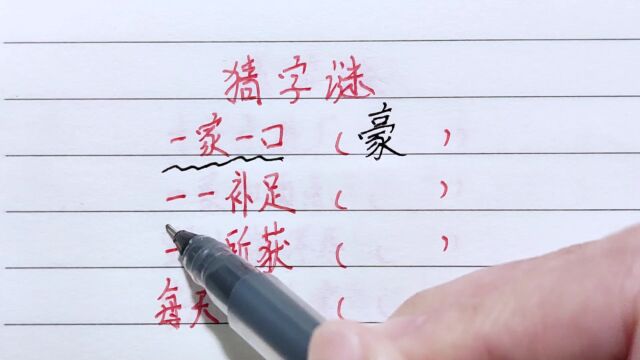 猜字谜
一家一口（豪）
一一补足（ ）
一 所获（ ）
每天（